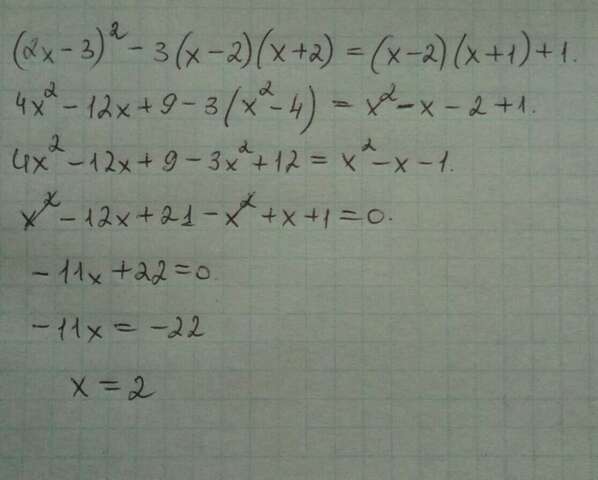 (2x-3)² - 3(x-2)(x+2) = (x-2)(x+1)+1.
4x² - 12x + 9 - 3(x² - 4) = x² - x - 2 + 1.
4x² - 12x + 9 - 3x² + 12 = x² - x - 1.
x² - 12x + 21 - x² + x + 1 = 0.
- 11x + 22 = 0
- 11x = - 22
x = 2